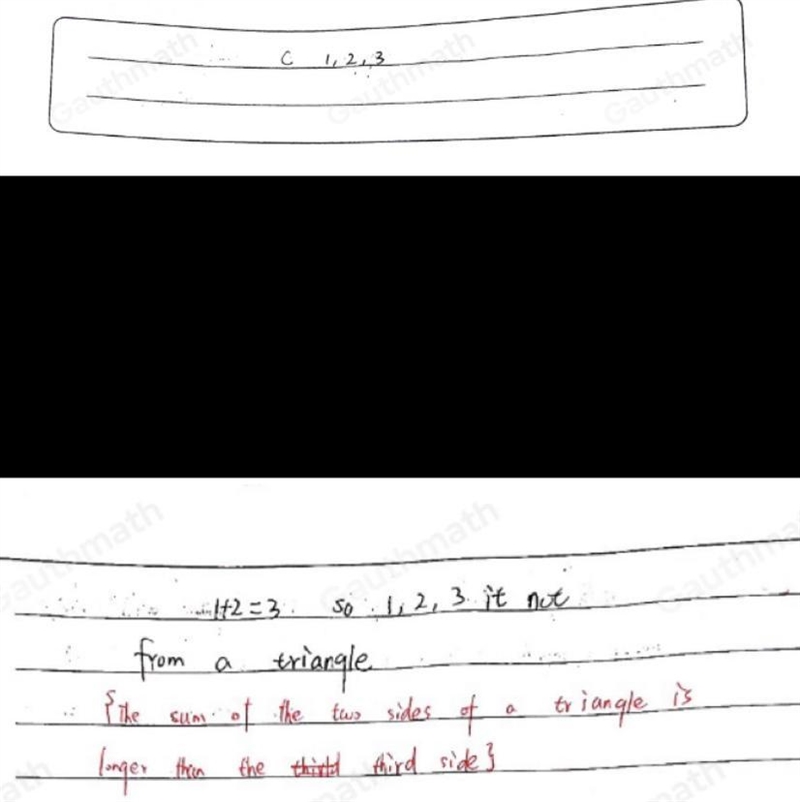 C 1, 2, 3
1+2=3. so 1, 2, 3 it not
from a triangle
{The sum of the two sides of a triangle is
longer then the third third side}